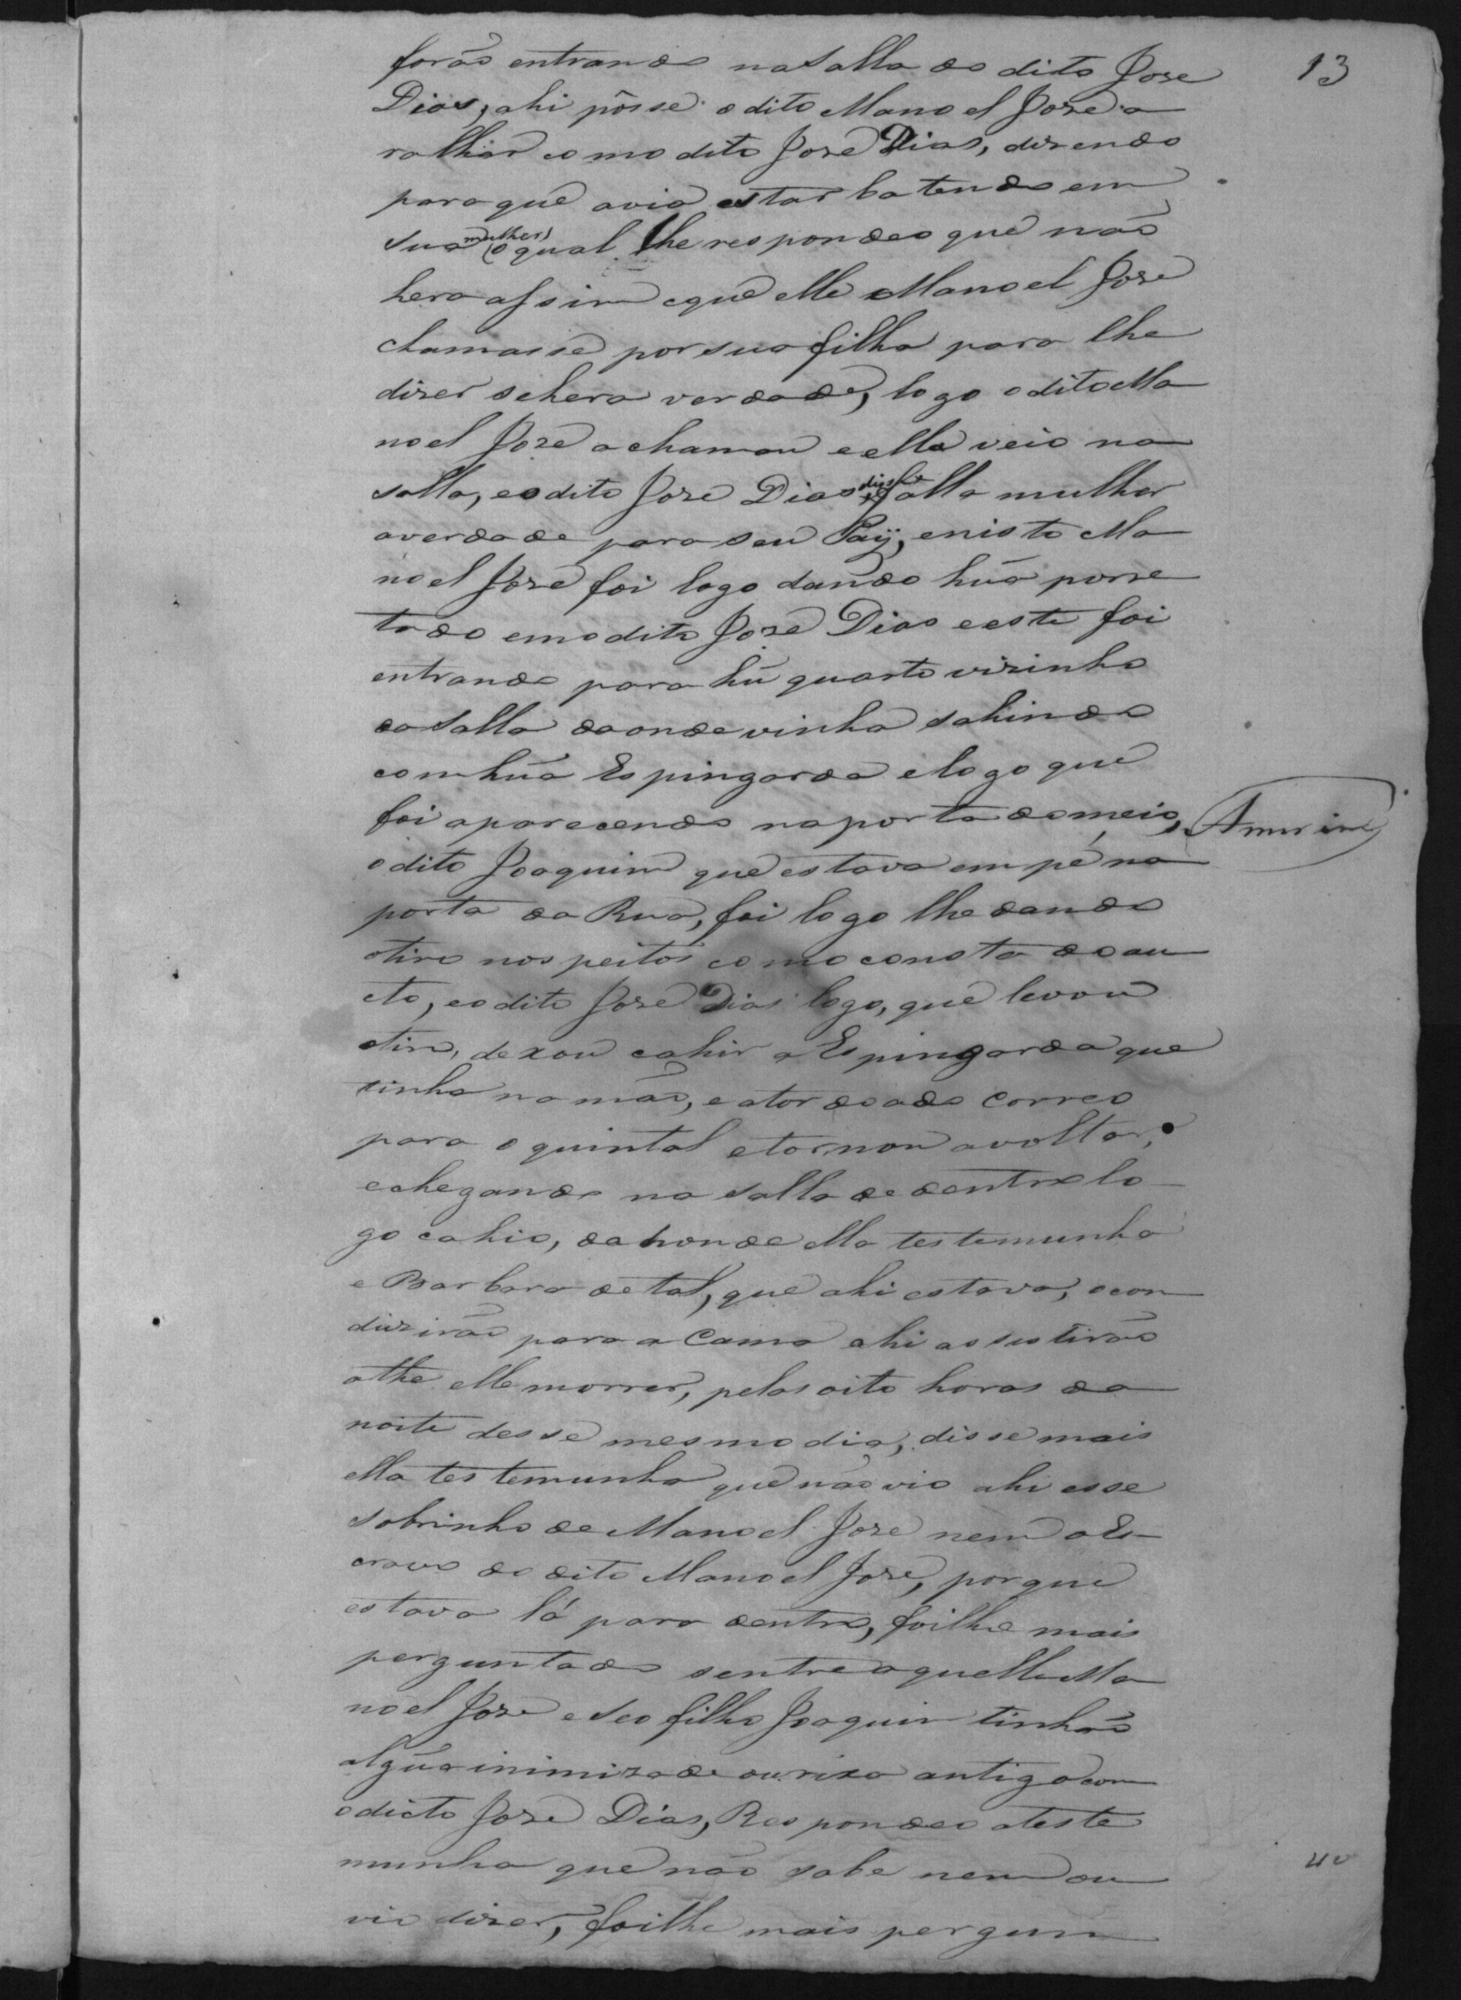 13
forão entrando na salla do dito Jose
Dias, ahi pôsse o dito Manoel Jose a
ralhar com o dito Jose Dias, dizendo
para que avia estar batendo em
sua mulher, o qual lhe respondeo que não
hera assim e que elle Manoel Jose
chamasse por sua filha para lhe
dizer se hera verdade, logo o dito Ma
noel Joze a chamou e ella veio na
salla, e o dito Joze Dias disse falla mulher
a verdade para seu Pay, e nisto Ma
noel Joze foi logo dando hũa porre
tada em o dito Joze Dias e este foi
entrando para hũ quarto vizinho
da salla da onde vinha sahindo
com hũa Espingarda e logo que
foi aparecendo na porta do meio,
Amorim
o dito Joaquim que estava em pé na
porta da Rua, foi logo lhe dando
o tiro nos peitos como consta do au
cto, e o dito Joze Dias logo, que levou
o tiro, dexou cahir a Espingarda que
tinha na mão, e atordoado correo
para o quintal e tornou a voltar,
e chegando na salla de dentro lo
go cahio, da honde ella testemunha
e Barbara de tal, que ahi estava, o con
duzirão para a Cama ahi assistirão
athe elle morrer, pelas oito horas da
noite desse mesmo dia, disse mais
ella testemunha que não vio ahi esse
sobrinho de Manoel Joze nem o Es
cravo do dito Manoel Joze, porque
estava lá para dentro, foi lhe mais
perguntado se entre aquelle Ma
noel Joze e seo filho Joaquim tinhão
algũa inimizade ou rixa antiga com
o dicto Joze Dias, Respondeo a teste
munha que não sabe nem ou
vio dizer, foi lhe mais pergun